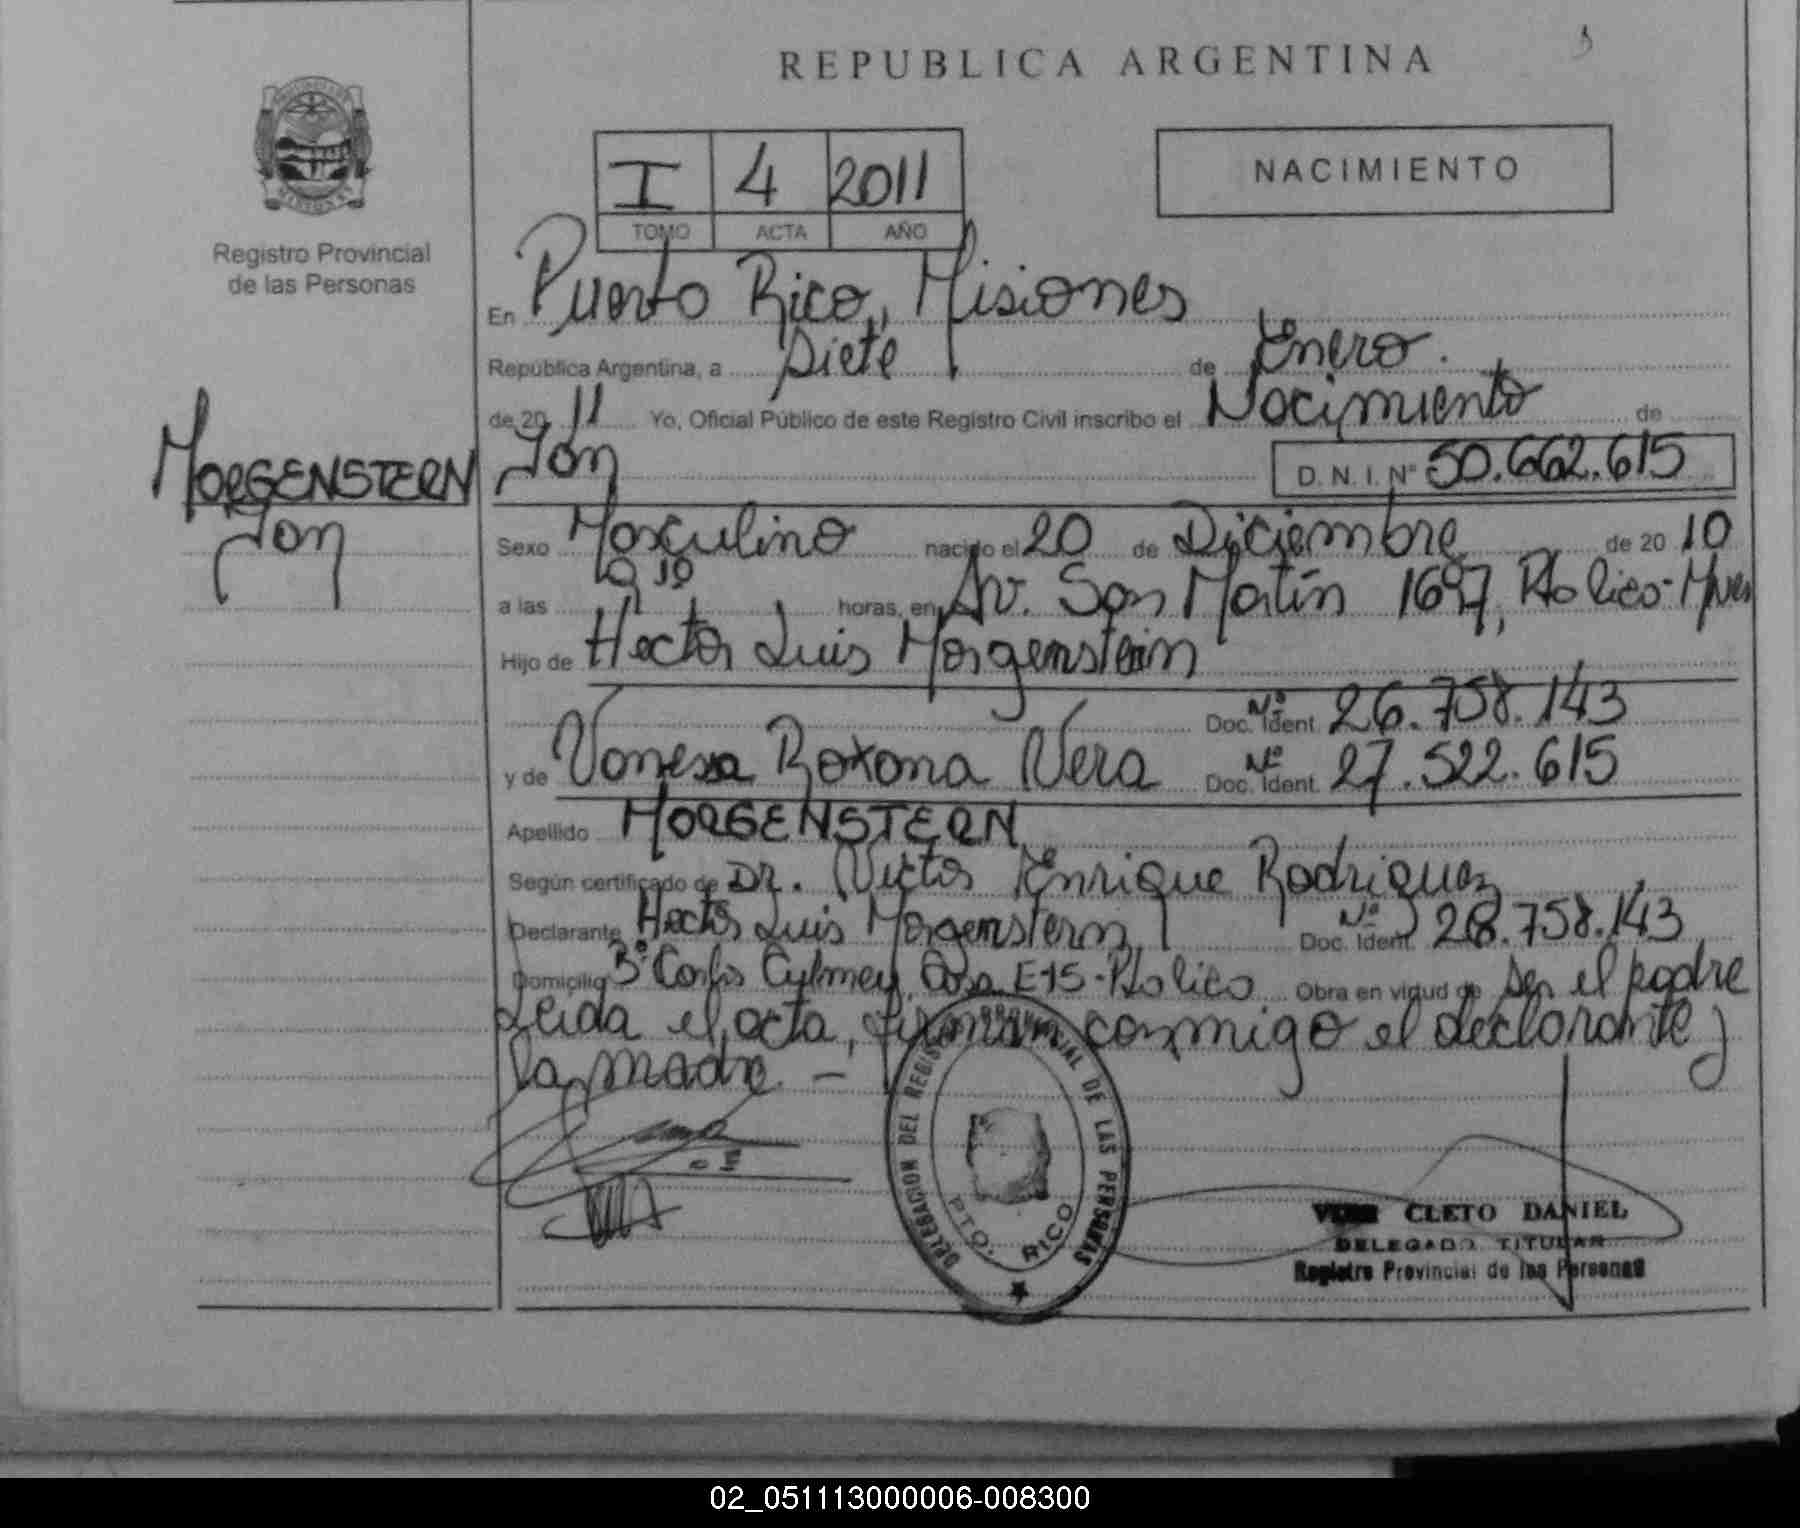 REPUBLICA ARGENTINA
Registro Provincial
de las Personas
I 4 2011
TOMO ACTA AÑO
NACIMIENTO
En Puerto Rico, Misiones
República Argentina, a Siete de Enero.
de 20 11 Yo, Oficial Público de este Registro Civil inscribo el Nacimiento de
MORGENSTERN
Ion
Ion D. N. I. Nº 50.662.615
Sexo Masculino nacido el 20 de Diciembre de 20 10
a las horas, en Av. San Martín 1697, Pto Rico-Mnes
Hijo de Hector Luis Morgenstern
Doc. Ident. Nº 26.758.143
y de Vanesa Roxana Vera Doc. Ident. Nº 27.522.615
Apellido MORGENSTERN
Según certificado de DR. Victor Enrique Rodriguez
Declarante Hector Luis Morgenstern Doc. Ident. Nº 26.758.143
Domicilio Bº Carlos Culmey, Casa E-15-Pto Rico Obra en virtud de ser el padre
Leida el acta, firman conmigo el declarante y
la madre. —
DELEGACION DEL REGISTRO PROVINCIAL DE LAS PERSONAS
PTO. RICO
CLETO DANIEL
DELEGADO TITULAR
Registro Provincial de las Personas
02_051113000006-008300